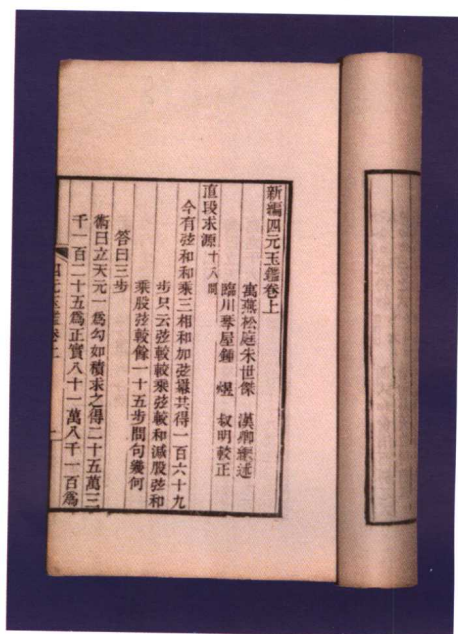 新編四元玉鑑卷上
寓燕松庭朱世傑 漢卿編述
臨川琴屋鍾 煜 叔明較正
直段求源十八問
今有弦和和乘三相和加弦冪共得一百六十九
步只云弦較較乘弦較和減股弦和
乘股弦較餘一十五步問句幾何
答曰三步
術曰立天元一爲勾如積求之得二十五萬三
千一百二十五爲正實八十一萬八千一百爲
四元玉鑑卷上